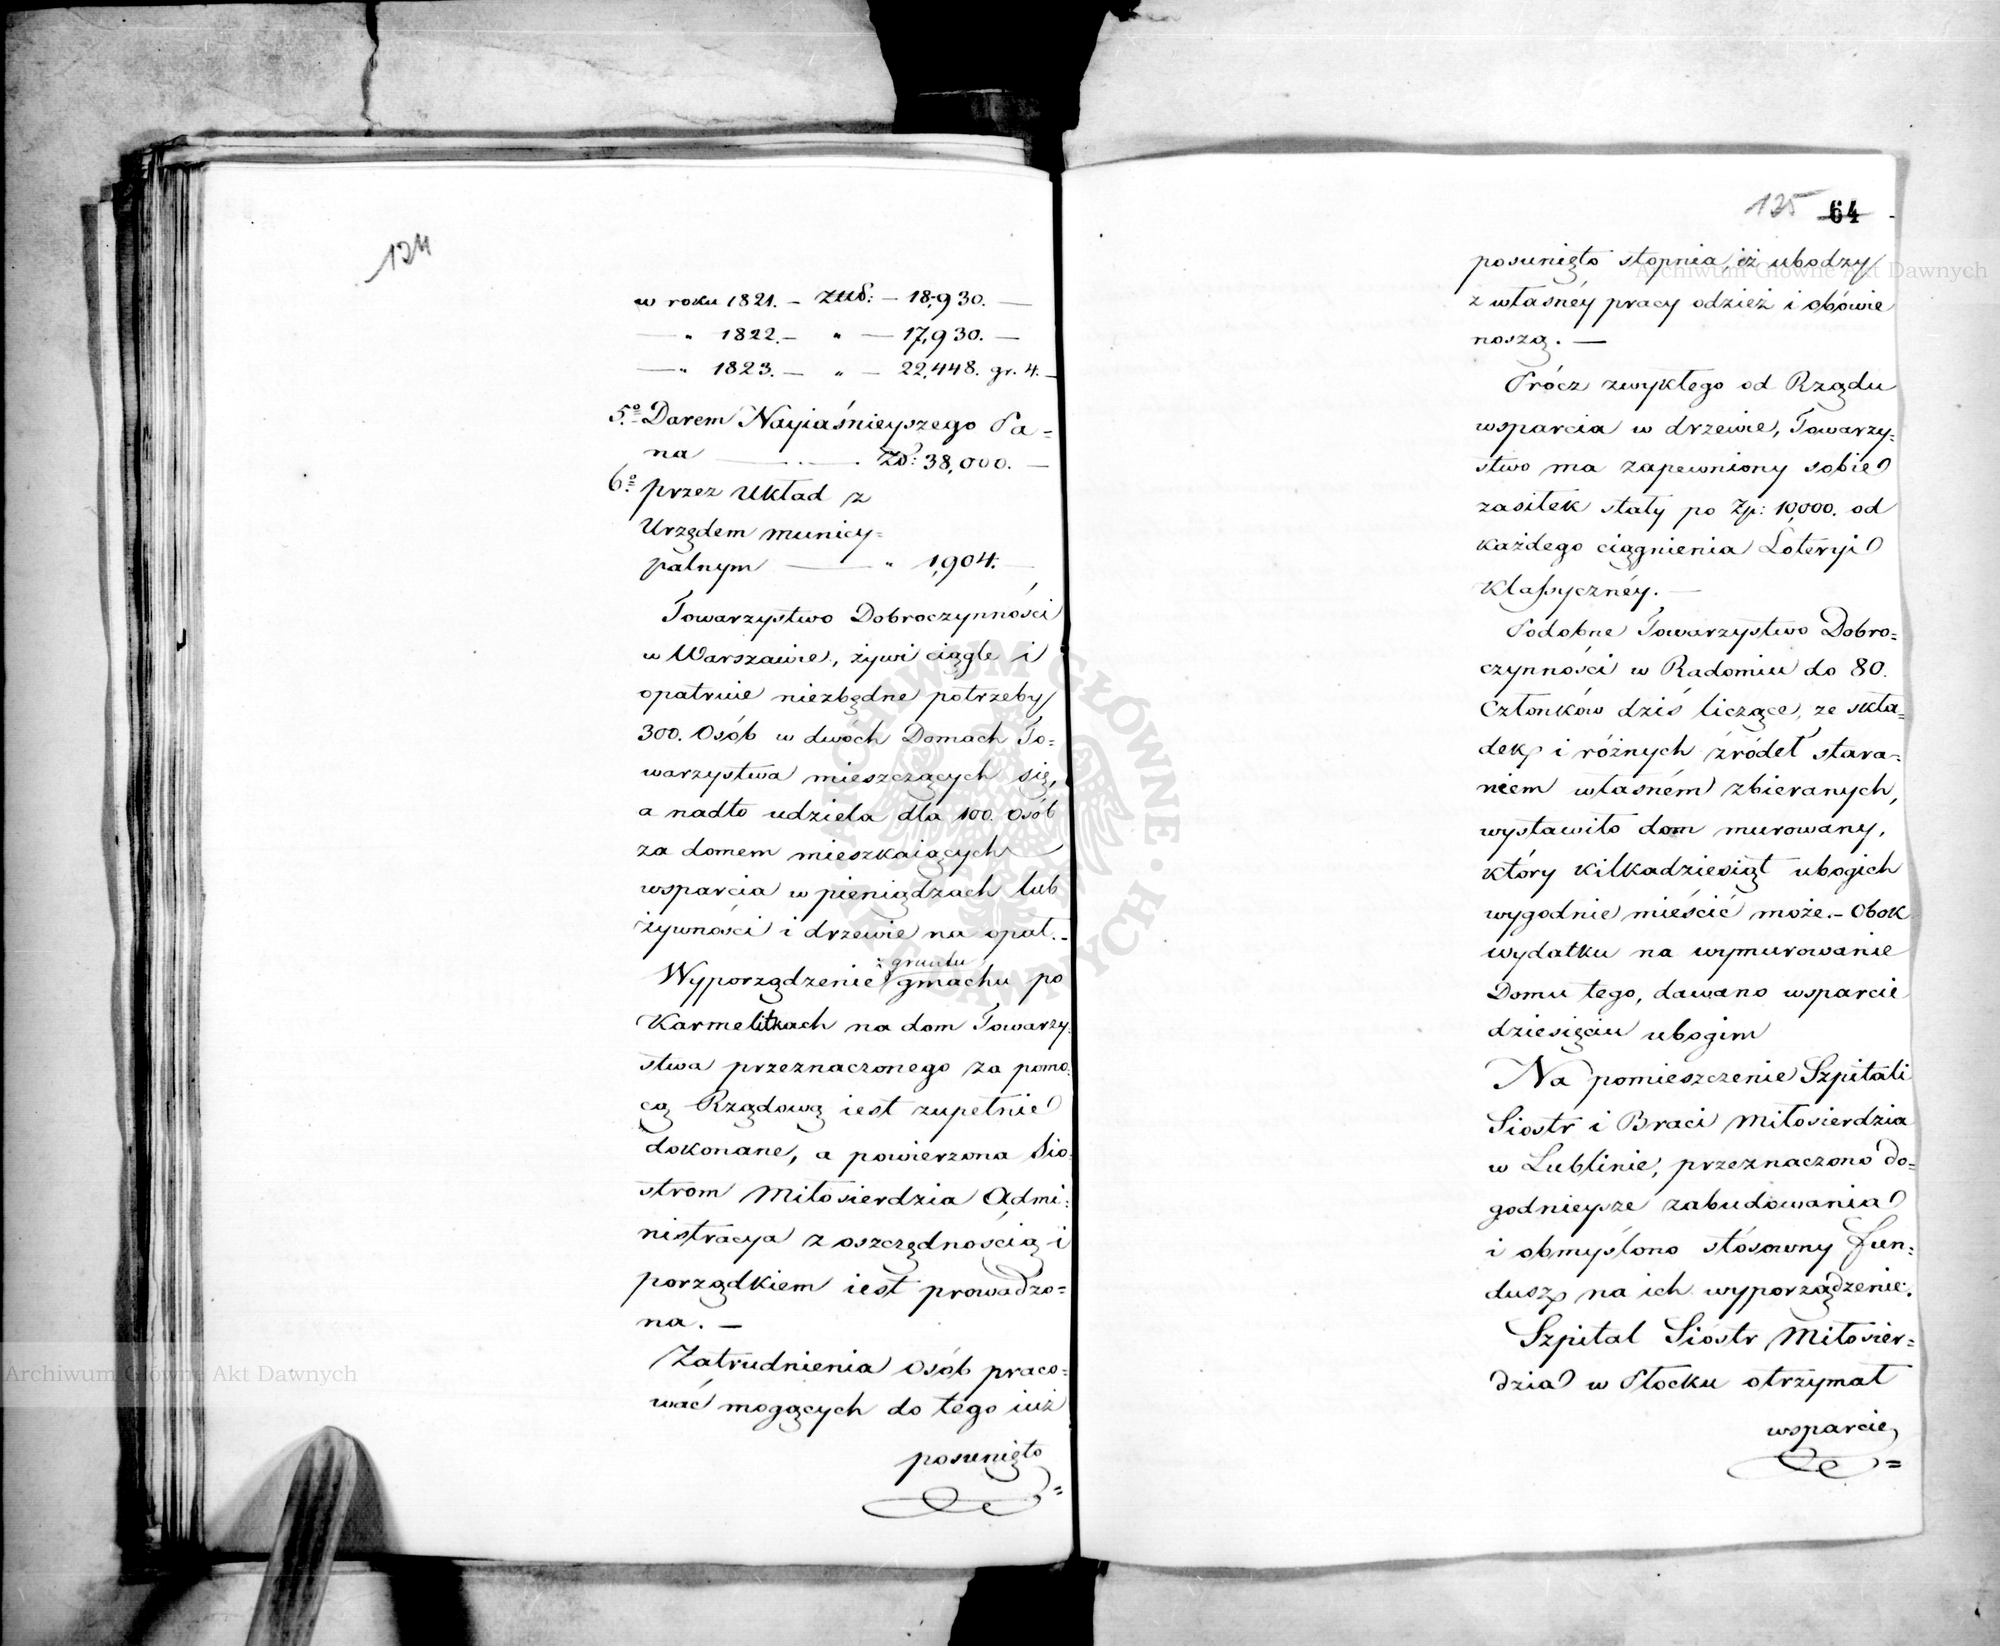 124
w roku 1821. – złłł: – 18,930. —
— „ 1822. – „ — 17,930. —
— „ 1823. — „ — 22,448. gr. 4. –
5º Darem Nayiaśnieyszego Pa=
na — . . — . Zł: 38,000. —
6º przez Układ z
Urzędem municy=
palnym — „ 1,904. —
Towarzystwo Dobroczynności
w Warszawie, żywi ciągle i
opatruie niezbędne potrzeby
300. Osób w dwóch Domach To=
warzystwa mieszczących się,
a nadto udziela dla 100. Osób
za domem mieszkaiących
wsparcia w pieniądzach lub
żywności i drzewie na opał. –
z gruntu
Wyporządzenie gmachu po
Karmelitkach na dom Towarzy=
stwa przeznaczonego za pomo=
cą Rządową iest zupełnie
dokonane, a powierzona Sio=
strom Miłosierdzia Admi=
nistracya z oszczędnością i
porządkiem iest prowadzo=
na. —
Zatrudnienia osób praco=
wać mogących do tego iuż
posunięto =
135 64
posunięto stopnia, iż ubodzy
z własnéy pracy odzież i obówie
noszą. —
Prócz zwykłego od Rządu
wsparcia w drzewie, Towarzy=
stwo ma zapewniony sobie
zasiłek stały po Zp: 10,000. od
każdego ciągnienia Loteryi
Klassycznéy. —
Podobne Towarzystwo Dobro=
czynności w Radomiu do 80.
Członków dziś liczące, ze skła=
dek, i różnych źródeł stara=
niem własném zbieranych,
wystawiło dom murowany,
który kilkadziesiąt ubogich
wygodnie mieścić może. – Obok
wydatku na wymurowanie
Domu tego, dawano wsparcie
dziesięciu ubogim
Na pomieszczenie Szpitali
Siostr i Braci Miłosierdzia
w Lublinie, przeznaczono do=
godnieysze zabudowania
i obmyślono stósowny fun=
dusz, na ich wyporządzenie.
Szpital Sióstr Miłosier=
dzia w Płocku otrzymał
wsparcie, =
Archiwum Główne Akt Dawnych
Archiwum Główne Akt Dawnych
ARCHIWUM GŁÓWNE AKT DAWNYCH